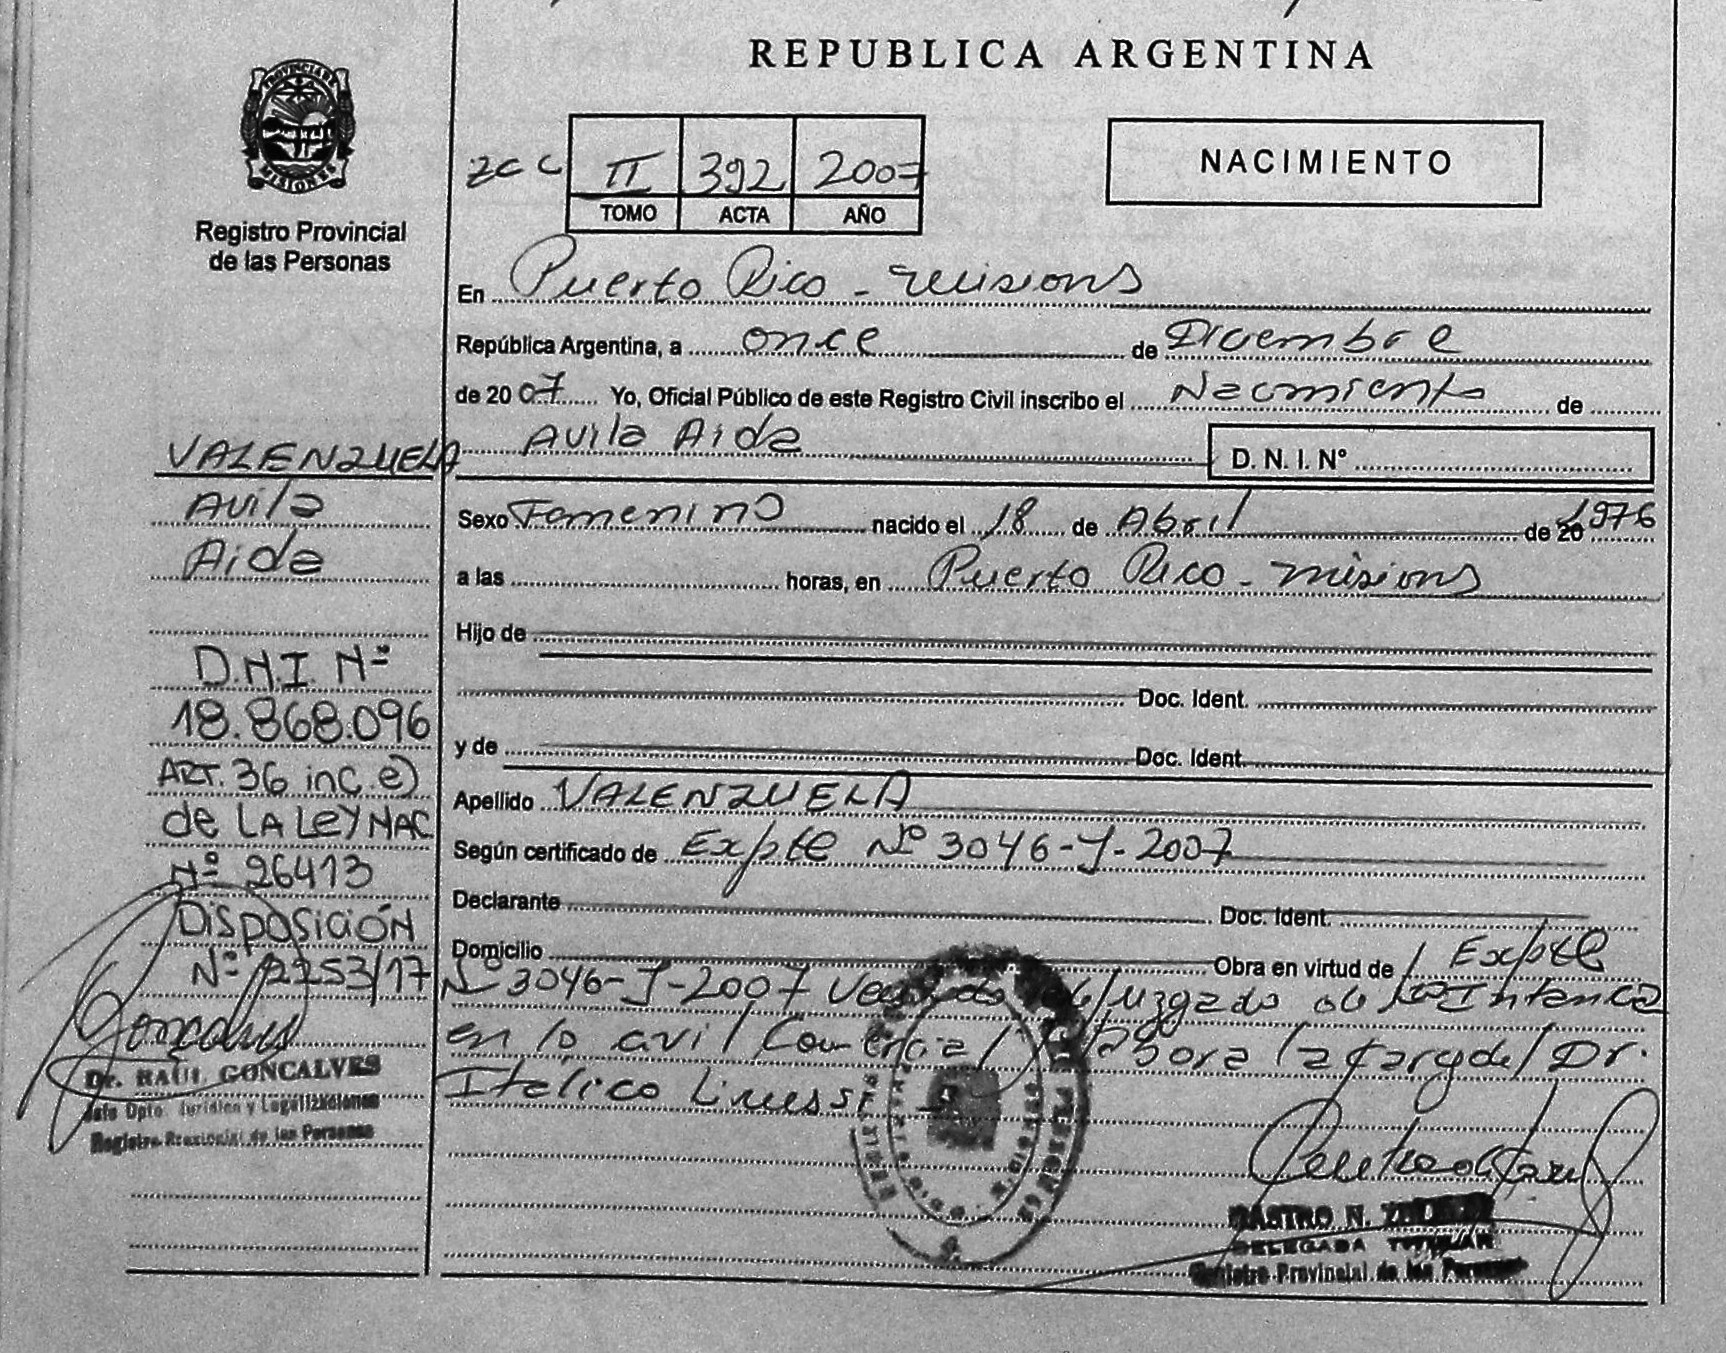 REPUBLICA ARGENTINA
PROVINCIA DE
MISIONES
Registro Provincial
de las Personas
II 392 2007
TOMO ACTA AÑO
NACIMIENTO
En Puerto Rico - Misions
República Argentina, a once de Diciembre
de 20 07 Yo, Oficial Público de este Registro Civil inscribo el Nacimiento de
Avila Aida
D. N. I. Nº
Sexo Femenino nacido el 18 de Abril de 20 1976
a las horas, en Puerto Rico - misions
Hijo de
Doc. Ident.
y de Doc. Ident.
Apellido VALENZUELA
Según certificado de Expte Nº 3046-J-2007
Declarante Doc. Ident.
Domicilio Obra en virtud de Expte
Nº 3046-J-2007 Juzgado de
en lo civil Comercial Labora l a cargo del Dr.
Italico
VALENZUELA
Avila
Aida
D.N.I. Nº
18.868.096
ART. 36 inc. e)
de LA Ley NAC
Nº 26413
Disposición
Nº 2253/17
Dr. RAUL GONCALVES
Jefe Dpto. Jurídico y Legalizaciones
Registro Provincial de las Personas
N.
DELEGADA TITULAR
Registro Provincial de las Personas